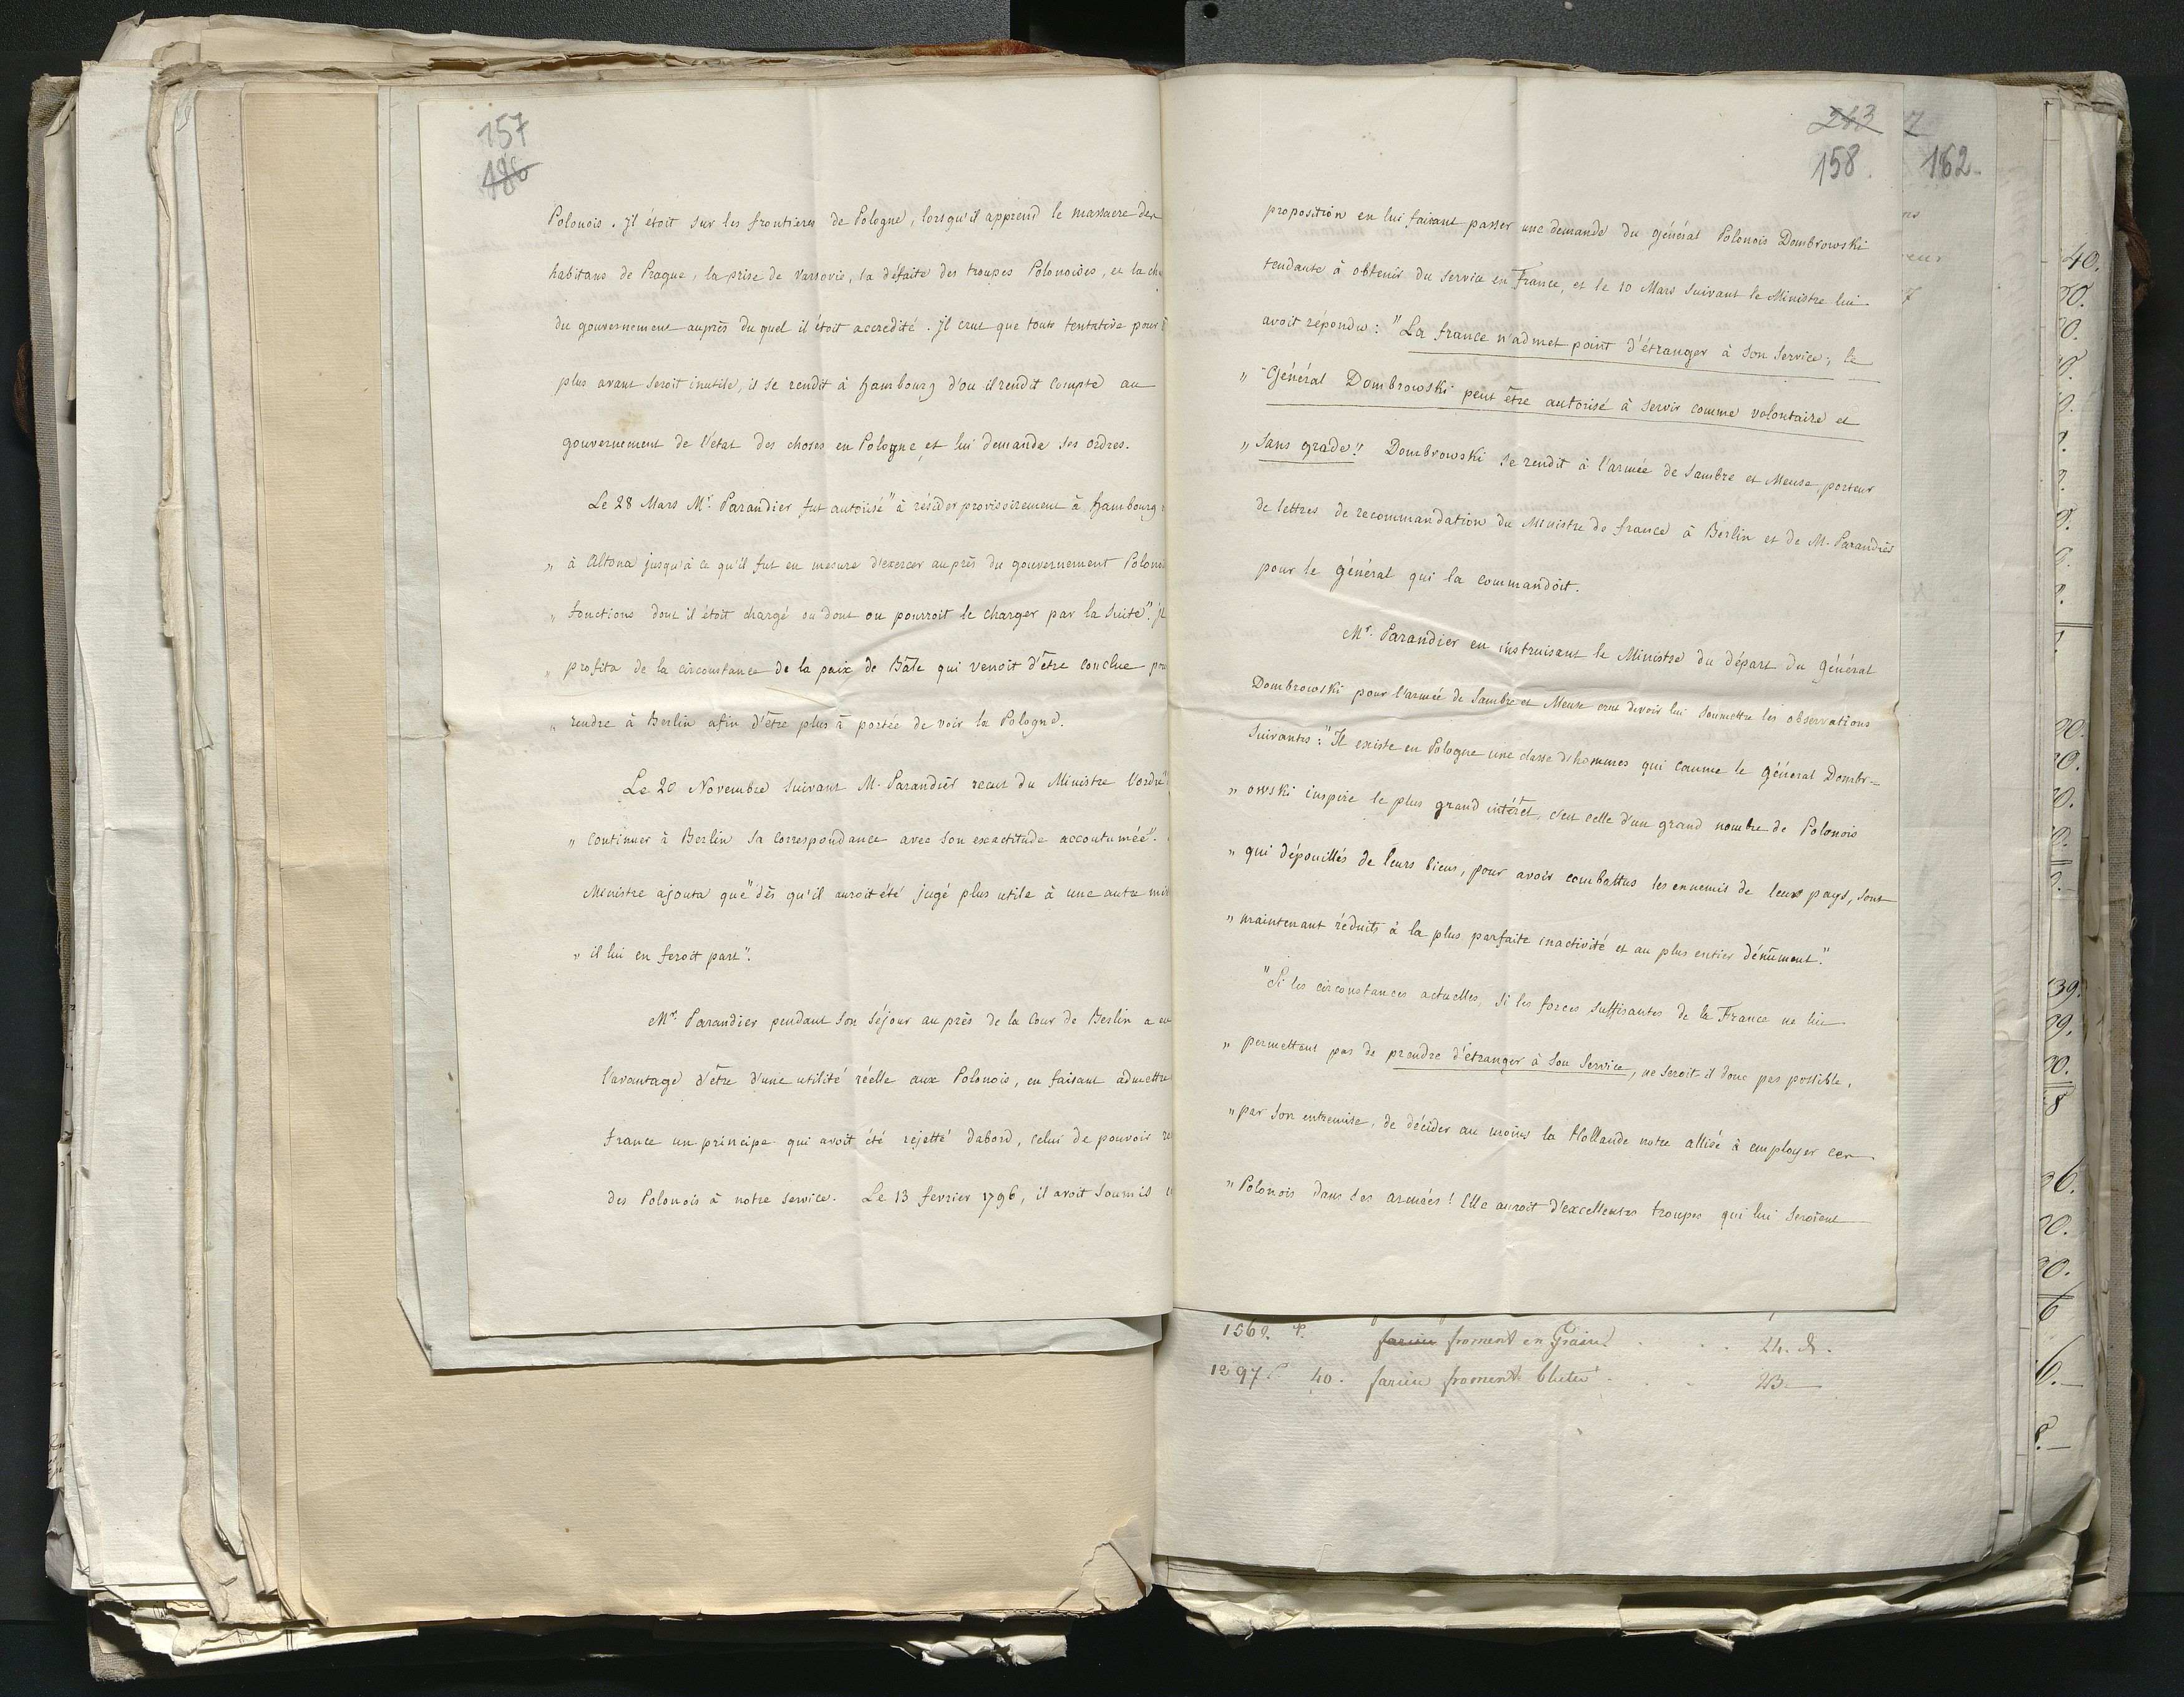 157
186
Polonois. Jl étoit sur les frontieres de Pologne, lorsqu'il apprend le massacre des
habitans de Prague, la prise de Varsovie, la défaite des troupes Polonoises, et la
du gouvernement auprès du quel il étoit accredité. Jl crut que toute tentative pour
plus avant seroit inutile, il se rendit à hambourg d'ou il rendit compte au
gouvernement de l'état des choses en Pologne, et lui demande ses ordres.
Le 28 Mars Mr. Parandier fut autorisé "à résider provisoirement à hambourg
" à Altona jusqu'à ce qu'il fut en mesure d'exercer auprès du gouvernement
" fonctions dont il étoit chargé ou dont on pourroit le charger par la suite".
" profita de la circonstance de la paix de Bâle qui venoit d'être conclue
" rendre à Berlin afin d'être plus à portée de voir la Pologne.
Le 20 Novembre suivant M. Parandier recut du Ministre l'ordre
" continuer à Berlin sa correspondance avec son exactitude accoutumée".
Ministre ajouta que "dès qu'il auroit été jugé plus utile à une autre
" il lui en feroit part".
Mr. Parandier pendant son séjour auprès de la Cour de Berlin a
l'avantage d'être d'une utilité réelle aux Polonois, en faisant admettre
france un principe qui avoit été rejetté dabord, celui de pouvoir
des Polonois à notre service. Le 13 fevrier 1796, il avoit soumis
213 7
158. 162.
proposition en lui faisant passer une demande du général Polonois Dombrowski
tendante à obtenir du service en France, et le 10 Mars suivant le Ministre lui
avoit répondu: "La france n'admet point d'étranger à son service; le
" Général Dombrowski peut être autorisé à servir comme volontaire et
" sans grade". Dombrowski se rendit à l'armée de Sambre et Meuse, porteur
de lettres de recommandation du Ministre de france à Berlin et de M. Parandier
pour le général qui la commandoit.
Mr. Parandier en instruisant le Ministre du départ du Général
Dombrowski pour l'armée de Sambre et Meuse crut devoir lui soumettre les observations
suivantes: "Il existe en Pologne une classe d'hommes qui comme le général Dombr=
" owski inspire le plus grand intérêt, c'est celle d'un grand nombre de Polonois
" qui dépouillés de leurs biens, pour avoir combattus les ennemis de leur pays, sont
" maintenant réduits à la plus parfaite inactivité et au plus entier dénûment".
"Si les circonstances actuelles, si les forces suffisantes de la France ne lui
" permettent pas de prendre d'étranger à son service, ne seroit-il donc pas possible,
" par son entremise, de décider au moins la Hollande notre alliée à employer ces
" Polonois dans ses armées! Elle auroit d'excellentes troupes qui lui seroient
1562. froment en Grains 24.
1897 40. farine froment bluté 23